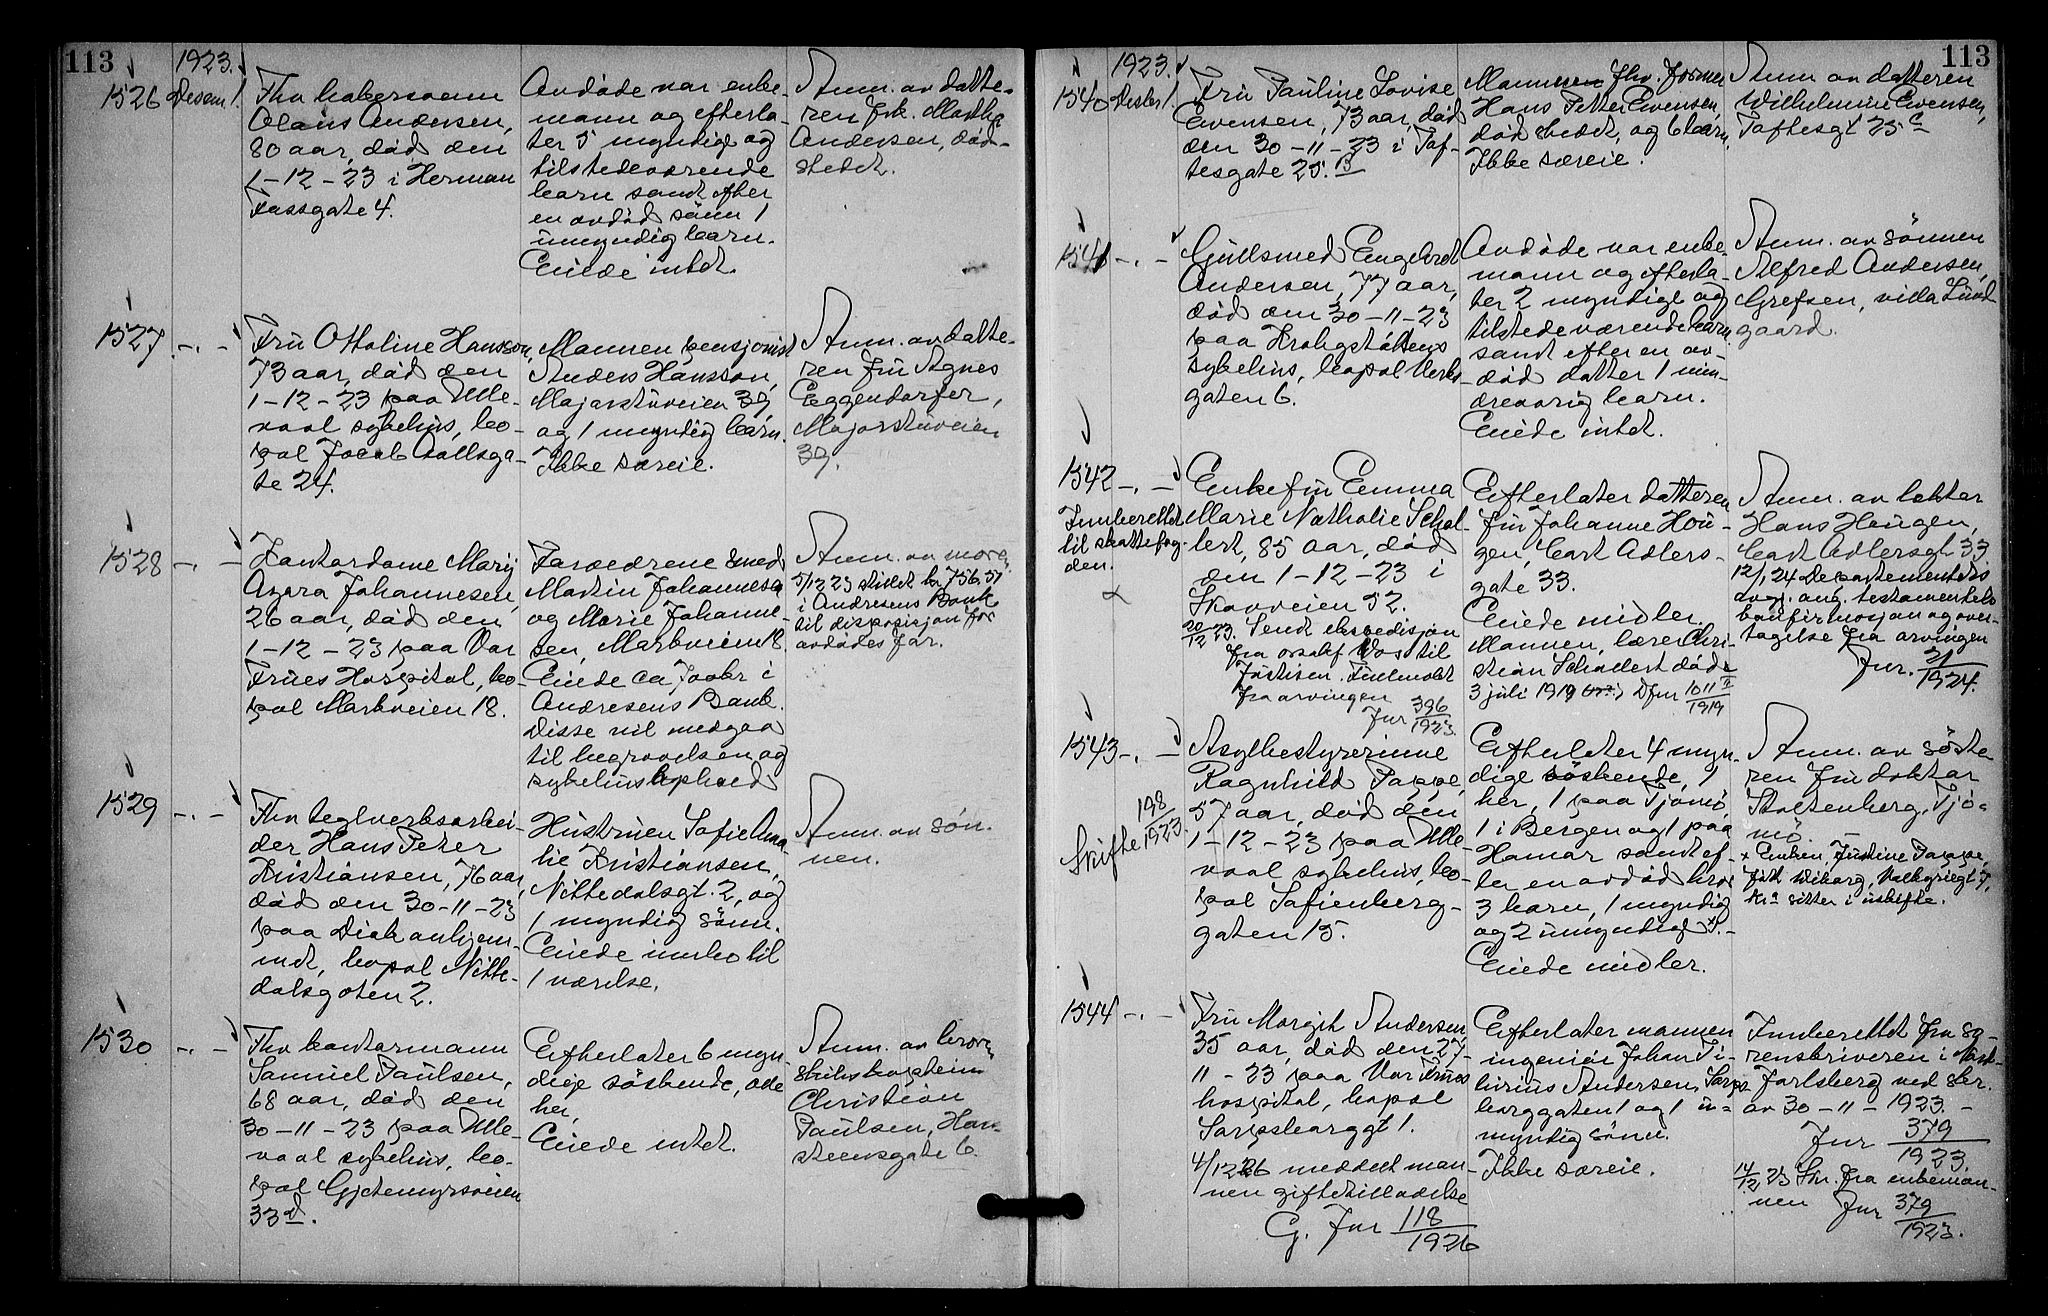 113
1923.
1526 Desem 1.
Fhv bakersvenn
Olaus Andersen,
80 aar, död den
1-12-23 i Herman
Fossgate 4.
Avdöde var enke-
mann og efterla-
ter 5 myndige og
tilstedeværende
barn samt efter
en avdöd sönn 1
umyndig barn.
Eiede intet.
Anm. av datte-
ren frk. Martha
Andersen, död-
stedet.
1527 -.-
Fru Ottoline Hansson,
73 aar, död den
1-12-23 paa Ulle-
vaal sykehus, bo-
pæl Jacob Aallsga-
te 24.
Mannen pensjonist
Anders Hansson,
Majorstuveien 39,
og 1 myndig barn.
Ikke særeie.
Anm. av datte-
ren fru Agnes
Eggendorfer,
Majorstuveien
39.
1528 -.-
Kontordame Mary
Azora Johannesen,
26 aar, död den
1-12-23 paa Vor
Frues Hospital, bo-
pæl Markveien 18.
Foreldrene smed
Martin Johannesen
og Marie Johanne-
sen, Markveien 18.
Eiede ca 700 kr i
Andresens Bank.
Disse vil medgaa
til begravelsen og
sykehusophold
Anm. av moren
5/12 23 stillet kr 756.51
i Andresens Bank
til disposisjon for
avdödes far.
1529 -.-
Fhv teglverksarbei-
der Hans Peter
Kristiansen, 76 aar,
död den 30-11-23
paa Diakonhjem-
met, bopæl Nitte-
dalsgaten 2.
Hustruen Sofie Ama-
lie Kristiansen,
Nittedalsgt. 2, og
1 myndig sönn.
Eiede innbo til
1 værelse.
Anm. av sön-
nen.
1530 -.-
Fhv kontormann
Samuel Paulsen,
68 aar, död den
30-11-23 paa Ulle-
vaal sykehus, bo-
pæl Gjetemyrsveien
33 d.
Efterlater 6 myn-
dige söskende, alle
her.
Eiede intet.
Anm. av broren
skibskaptein
Christian
Paulsen, Han-
steensgate 6.
113
1923.
1540 Desbr 1.
Fru Pauline Lovise
Evensen, 73 aar, död
den 30-11-23 i Tof-
tesgate 25. B
Mannen fhv. former
Hans Petter Evensen,
död stedet, og 6 barn.
Ikke særeie.
Anm av datteren
Wilhelmine Evensen,
Toftesgt 25 c
1541 -.-
Gullsmed Engebret
Andersen, 77 aar,
död den 30-11-23
paa Krohgstöttens
sykehus, bopæl Verks-
gaten 6.
Avdöde var enke-
mann og efterla-
ter 2 myndige og
tilstedeværende barn
samt efter en av-
död datter 1 min-
dreaarig barn.
Eiede intet.
Anm. av sönnen
Alfred Andersen,
Grefsen, villa Lund
gaard.
1542 -.-
Innberettet
til skattefog-
den.
Enkefru Emma
Marie Nathalie Schol-
lert, 85 aar, död
den 1-12-23 i
Skovveien 52.
20/12 23. Sendt ekspedisjon
fra orsakf Vos til
Justisen. Fullmakt
fra arvingen
Jnr 396/1923.
Efterlater datteren
fru Johanne Hou-
gen, Cort Adlers-
gate 33.
Eiede midler.
Mannen, lærer Chri-
stian Schollert döde
3 juli 1919 Dfnr 1011 II/1919
Anm. av lektor
Hans Hougen,
Cort Adlersgt 33
12/1 24 Departementets
avgj. ang. testamentets
konfirmasjon og over-
tagelse fra arvingen
Jnr. 21/1924.
1543 -.-
Skifte 198/1923.
Asylbestyrerinne
Ragnhild Pappe,
57 aar, död den
1-12-23 paa Ulle-
vaal sykehus, bo-
pæl Sofienberg-
gaten 15.
Efterlater 4 myn-
dige söskende, 1
her, 1 paa Tjömö,
1 i Bergen og 1 paa
Hamar samt ef-
ter en avdöd bror
3 barn, 1 myndig
og 2 umyndige x.-
Eiede midler.
Anm. av söste-
ren fru doktor
Stoltenberg, Tjö-
mö. -
x Enken, Justine Pappe,
födt Wiborg, Valkyriegt 7,
Kr.a sitter i uskifte.
1544 -.-
Fru Margit Andersen
35 aar, död den 27-
11-23 paa Vor Frues
hospital, bopæl
Sarpsborggt 1.
4/1226 meddelt man-
nen giftetilladelse
G. Jnr 118/1926
Efterlater mannen
ingeniör Johan Ti-
burius Andersen, Sarps-
borggaten 1 og 1 u-
myndig sönn.
Ikke særeie.
Innberettet fra so-
renskriveren i Nord-
Jarlsberg ved skr.
av 30-11-1923. -
Jnr 379/1923.
14/12 23 Skr. fra enkeman-
nen Jnr 379/1923.